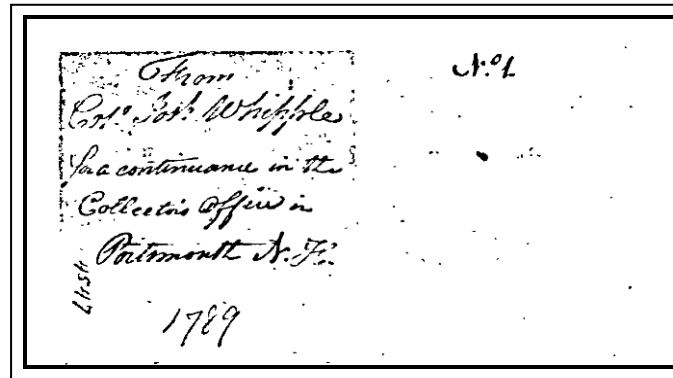 From
Colº Josh Whipple
for a continuance in the
Collectors Office in
Portsmouth N. H.
1789
Nº 1